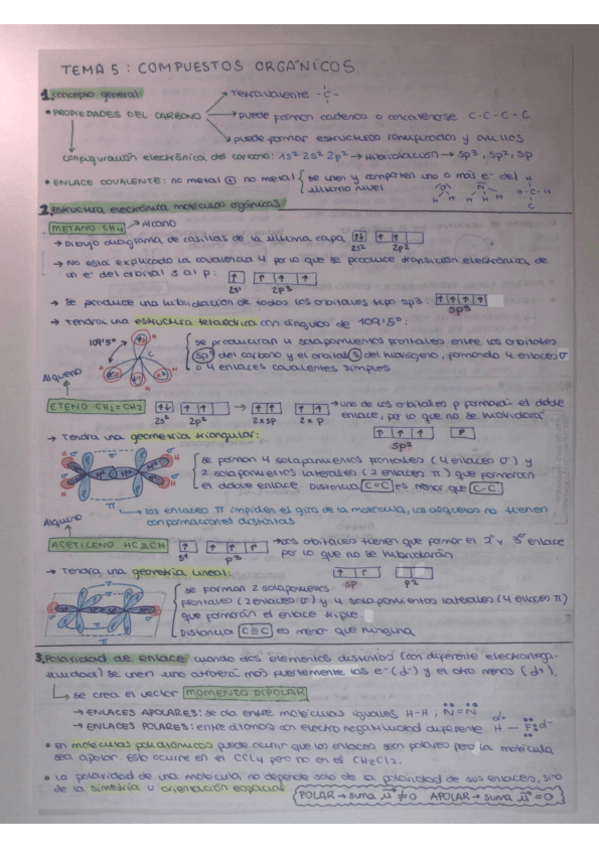 TEMA 5: COMPUESTOS ORGÁNICOS
1. concepto general
• PROPIEDADES DEL CARBONO → Tetravalente -C-
→ puede formar cadenas o concatenarse C-C-C-C
→ puede formar estructuras ramificadas y anillos
configuración electrónica del carbono: 1s² 2s² 2p² → hibridación → sp³, sp², sp
• ENLACE COVALENTE: no metal + no metal { se unen y comparten uno o más e⁻ del
último nivel
2. Estructura electrónica moléculas orgánicas
METANO CH4 → Alcano
→ Dibujo diagrama de casillas de la última capa
2s² 2p²
→ No está explicada la covalencia 4 por lo que se produce transición electrónica de
un e⁻ del orbital s al p:
2s¹ 2p³
→ Se produce una hibridación de todos los orbitales tipo sp3:
sp3
→ Tendrá una estructura tetraédrica con ángulos de 109'5°:
109'5°
se producirán 4 solapamientos frontales entre los orbitales
sp³ del carbono y el orbital s del hidrógeno, formando 4 enlaces σ
o 4 enlaces covalentes simples
Alqueno
ETENO CH2=CH2 → uno de los orbitales p formará el doble
enlace, por lo que no se hibridará
2s² 2p² 2 x sp 2 x p
→ Tendrá una geometría triangular:
sp² p
se forman 4 solapamientos frontales (4 enlaces σ) y
2 solapamientos laterales (2 enlaces π) que formarán
el doble enlace. Distancia C=C es menor que C-C
π
→ los enlaces π impiden el giro de la molécula, los alquenos no tienen
conformaciones distintas
Alquino
ACETILENO HC≡CH → Dos orbitales tienen que formar el 2º y 3er enlace
por lo que no se hibridarán
s¹ p³
→ Tendrá una geometría lineal:
sp p2
se forman 2 solapamientos
frontales (2 enlaces σ) y 4 solapamientos laterales (4 enlaces π)
que formarán el enlace triple.
Distancia C≡C es menor que ninguna
3. Polaridad de enlace: cuando dos elementos distintos (con diferente electronega-
tividad) se unen uno atraerá más fuertemente los e⁻ (d⁻) y el otro menos (d⁺).
→ se crea el vector MOMENTO DIPOLAR
→ ENLACES APOLARES: se da entre moléculas iguales H-H ; N=N
→ ENLACES POLARES: entre átomos con electronegatividad diferente H — F d⁻
d⁺
• en moléculas poliatómicas puede ocurrir que los enlaces sean polares pero la molécula
sea apolar. Esto ocurre en el CCl4 pero no en el CH2Cl2.
• La polaridad de una molécula no depende solo de la polaridad de sus enlaces, sino
de la simetría u orientación espacial { POLAR → suma μ ≠ 0 APOLAR → suma μ = 0 }